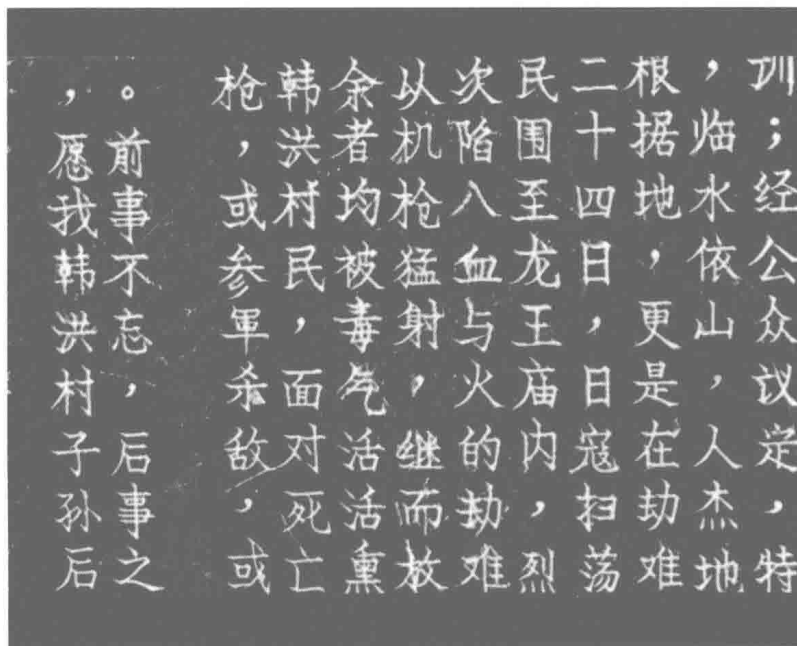 训；经公众议定，特
，临水依山，人杰地
根据地，更是在劫难
二十四日，日寇扫荡
民围至龙王庙内，烈
次陷入血与火的劫难
以机枪猛射，继而放
余者均被毒气活活熏
韩洪村民，面对死亡
枪，或参军杀敌，或
。前事不忘，后事之
，愿我韩洪村子孙后